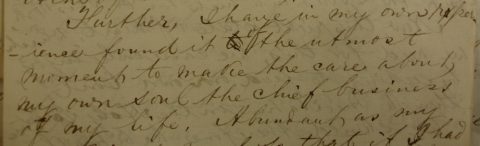 Further, I have in my own exper
-ience found it of the utmost
moment, to make the care about
my own soul the chief business
of my life. Abundant as my
that if I had